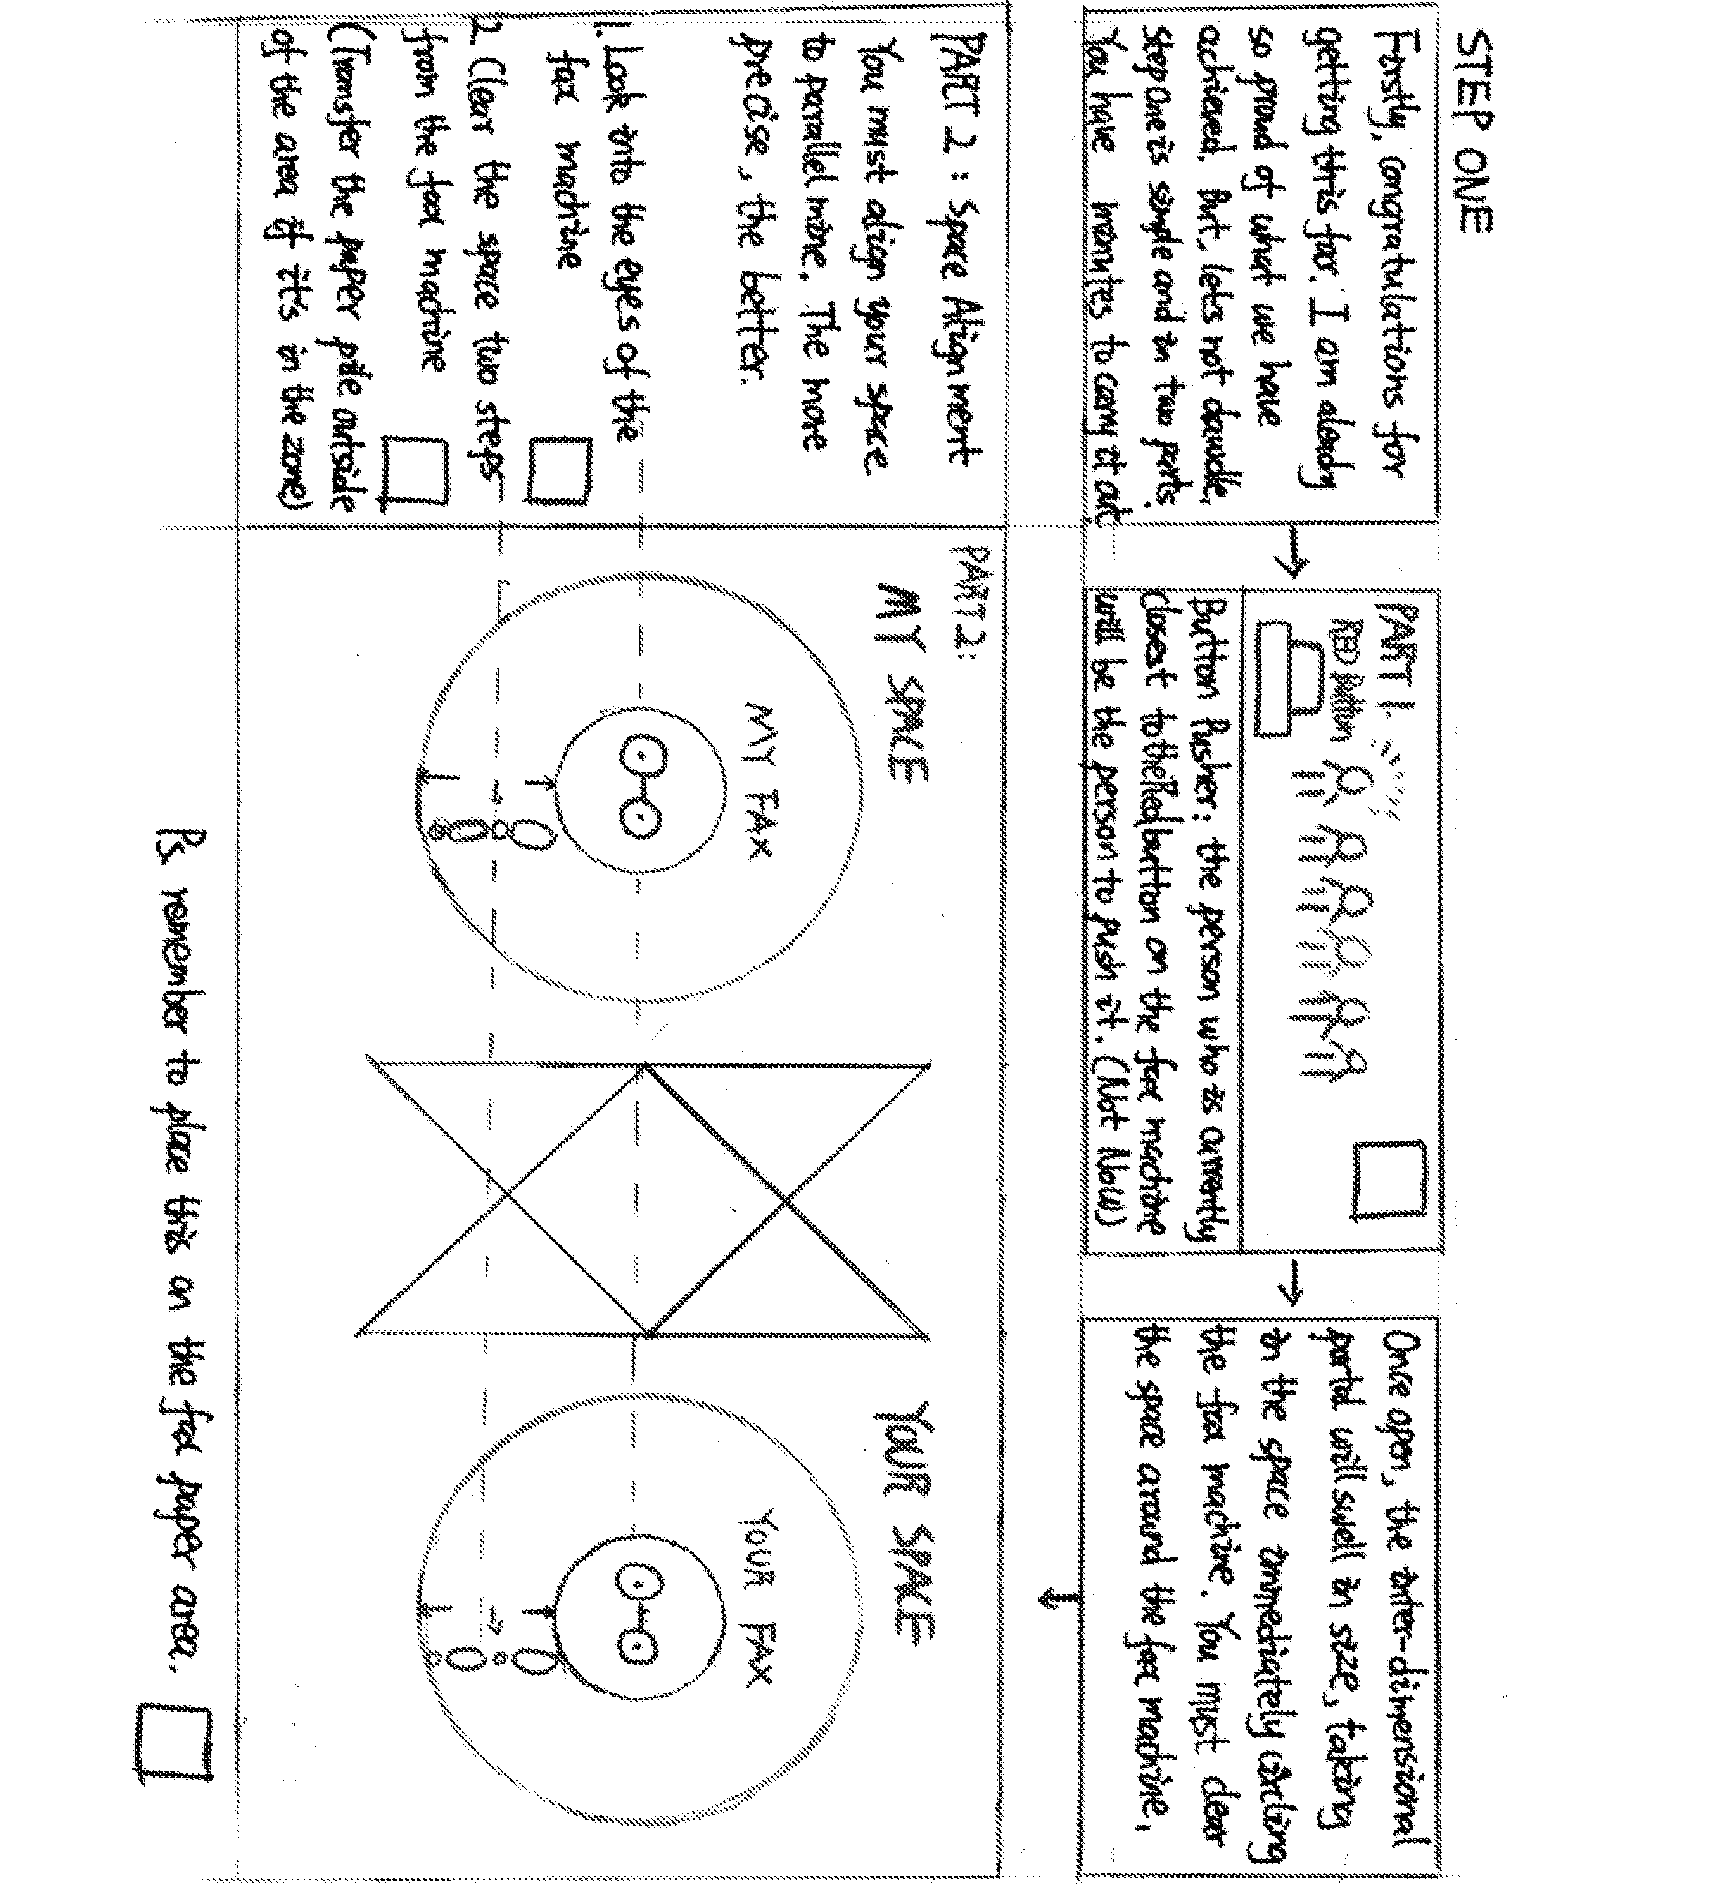 STEP ONE
Firstly, congratulations for
getting this far. I am already
so proud of what we have
achieved. But, lets not dawdle.
Step One is simple and in two parts.
You have minutes to carry it out
PART 1.
RED Button
Button Pusher: the person who is currently
closest to the Red button on the fax machine
will be the person to push it. (Not Now)
Once open, the inter-dimensional
portal will swell in size, taking
in the space immediately circling
the fax machine. You must clear
the space around the fax machine,
PART 2: Space Alignment
You must align your space
to parallel mine. The more
precise, the better.
1. Look into the eyes of the
fax machine
2. Clear the space two steps
from the fax machine
(Transfer the paper pile outside
of the area if it's in the zone)
PART 2:
MY SPACE
MY FAX
YOUR SPACE
YOUR FAX
Ps. remember to place this on the fax paper area.